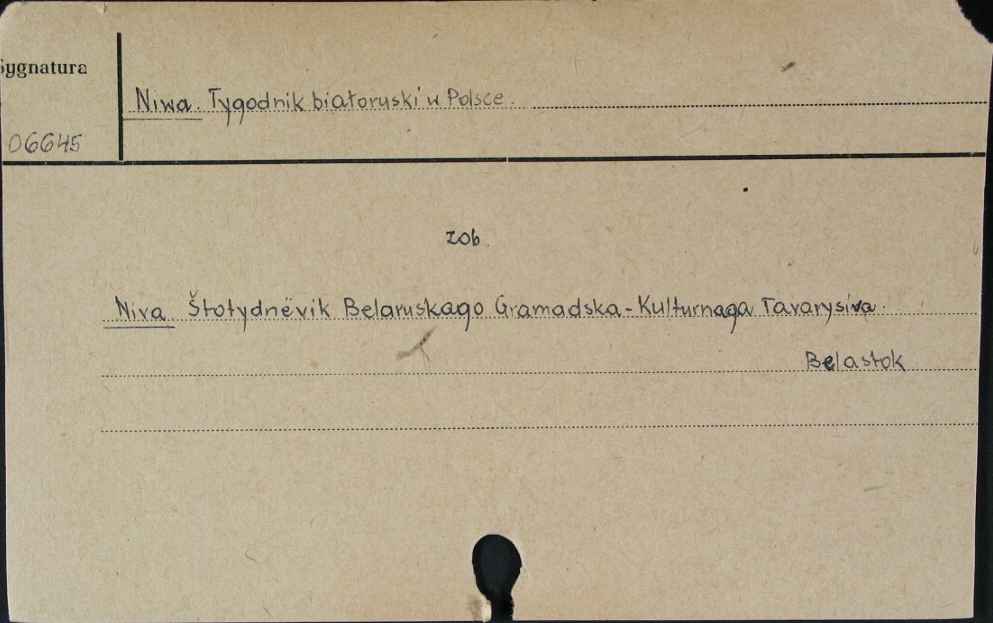 Sygnatura
Niwa. Tygodnik białoruski w Polsce.
06645
zob.
Niva Štotydnëvik Belaruskago Gramadska-Kulturnaga Tavarysiva.
Belastok